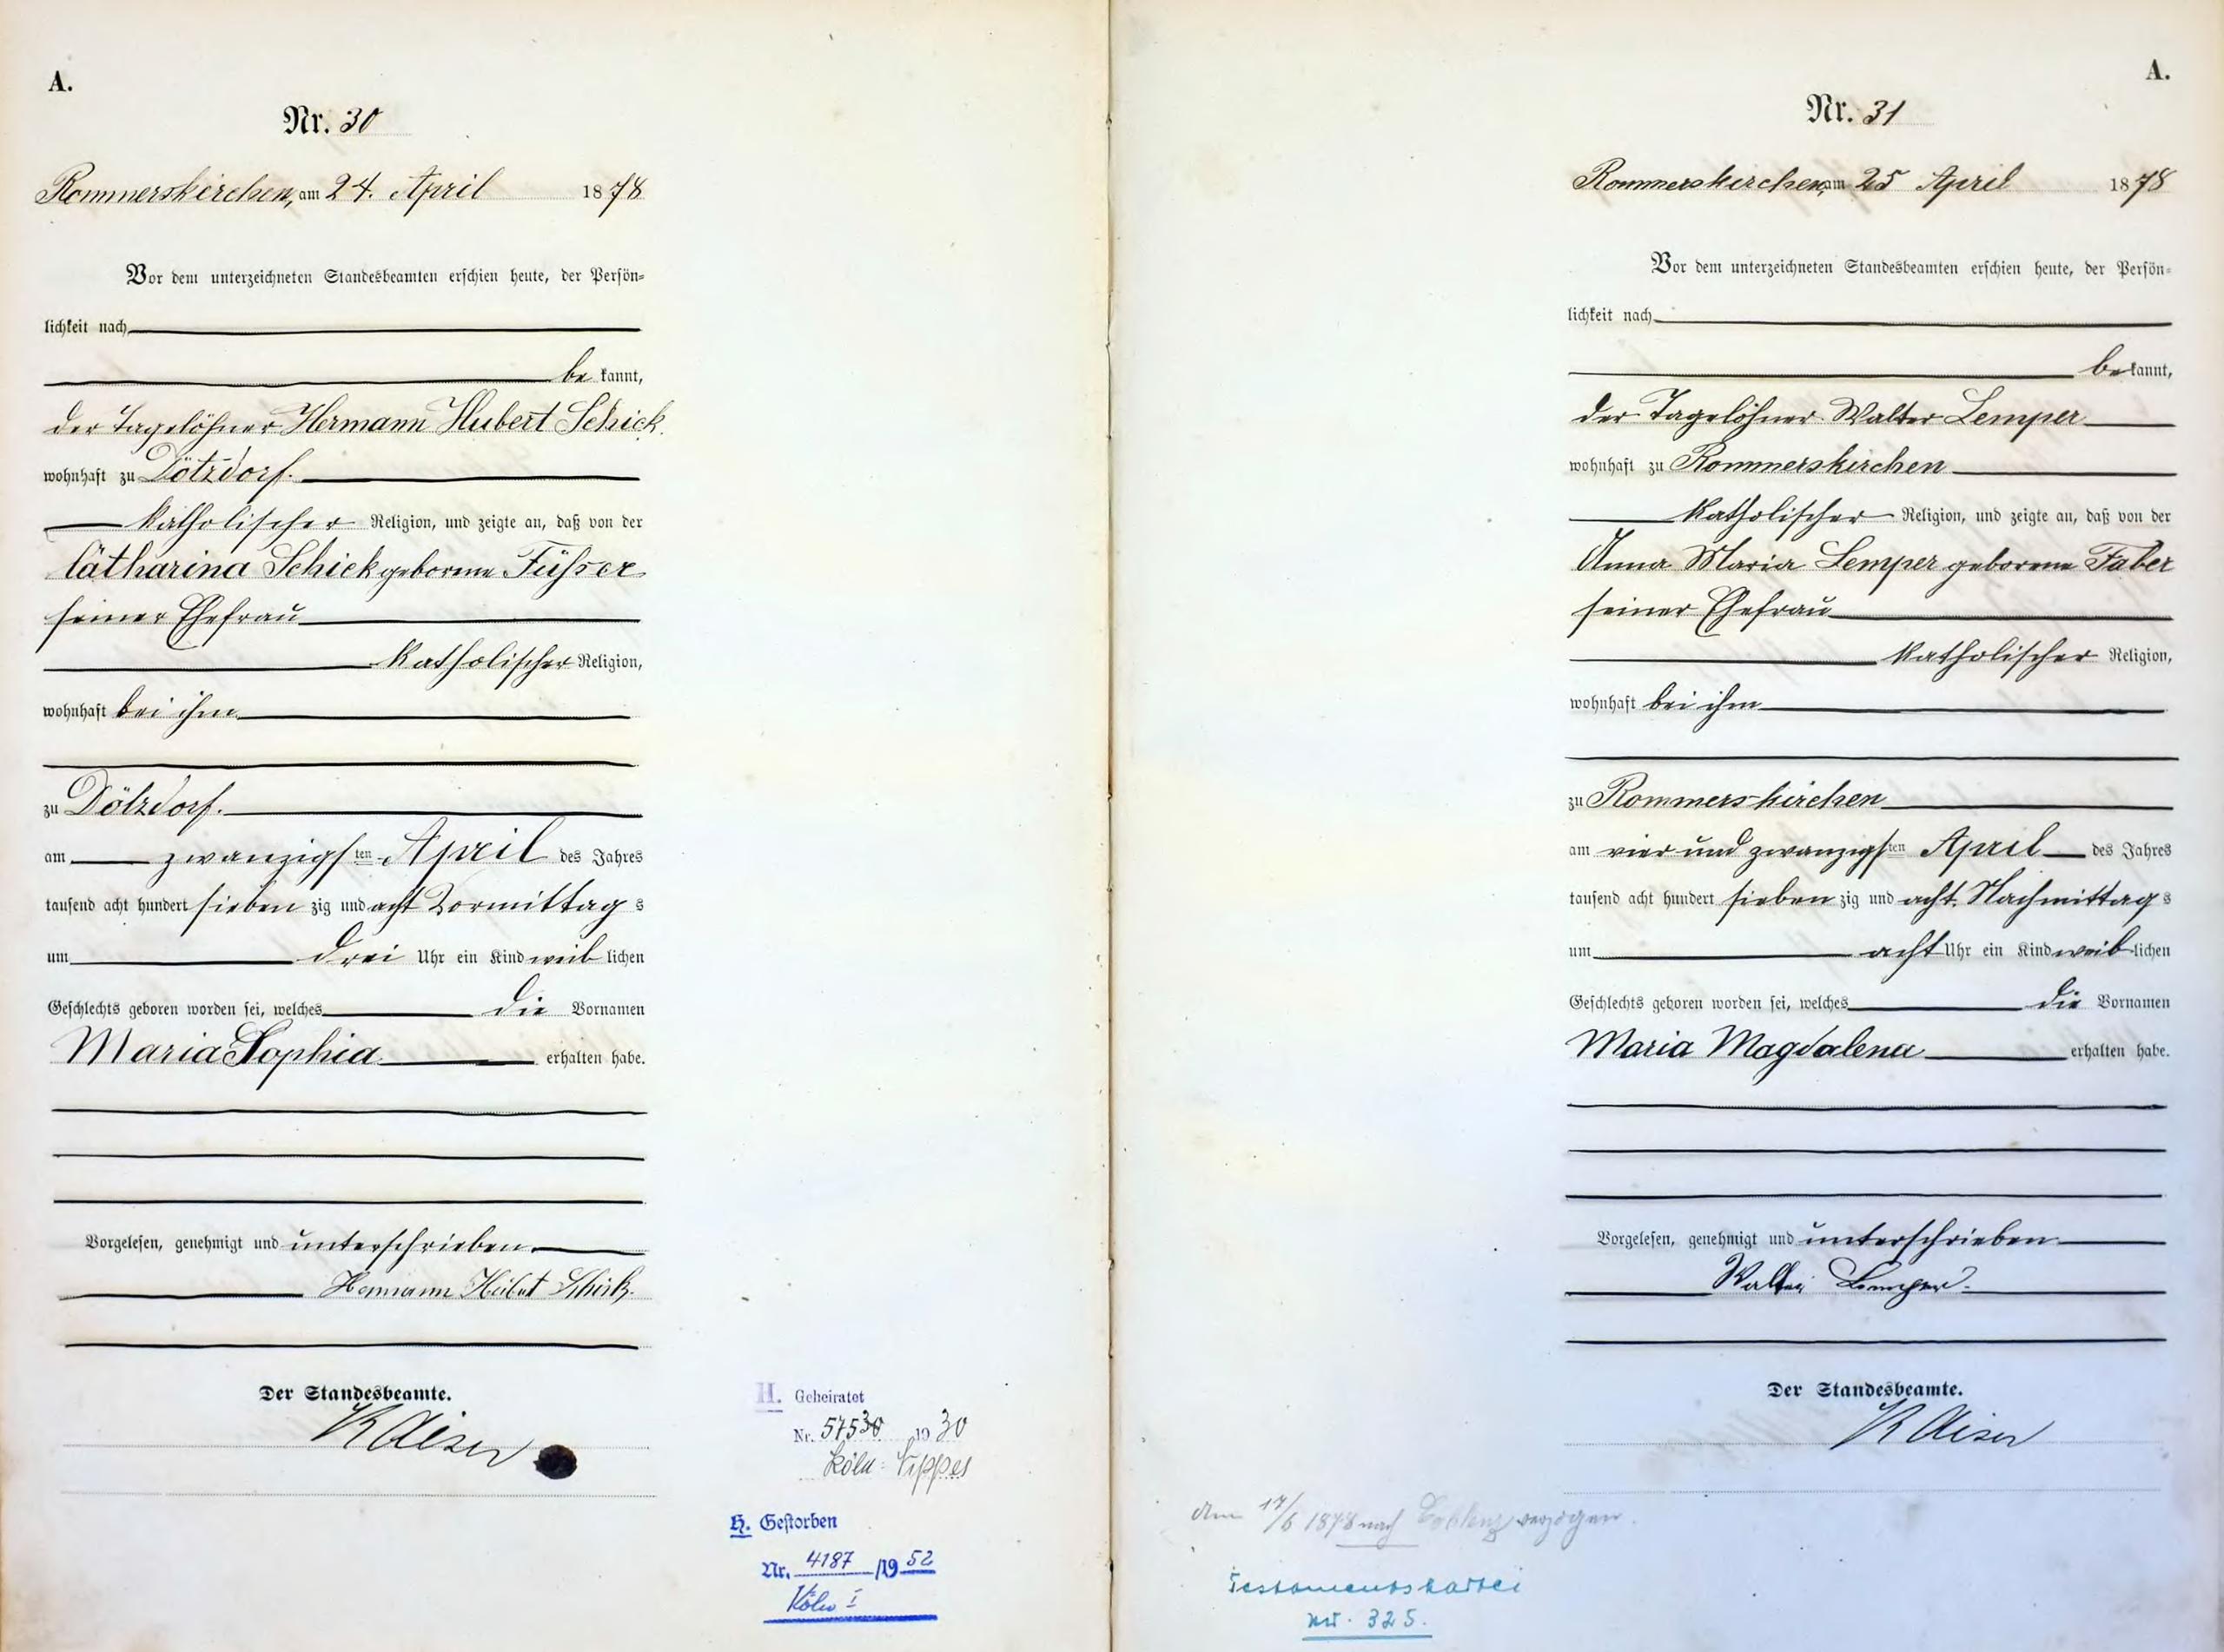 A.
Nr. 30
Rommerskirchen, am 24. April 1878
Vor dem unterzeichneten Standesbeamten erschien heute, der Persön-
lichkeit nach
be kannt,
der Tagelöhner Hermann Hubert Schick
wohnhaft zu Dötzdorf.
katholischer Religion, und zeigte an, daß von der
Catharina Schick geborene Füsser
seiner Ehefrau
katholischer Religion,
wohnhaft bei ihm
zu Dötzdorf.
am zwanzigsten April des Jahres
tausend acht hundert sieben zig und acht Vormittag s
um drei Uhr ein Kind weib lichen
Geschlechts geboren worden sei, welches die Vornamen
Maria Sophia erhalten habe.
Vorgelesen, genehmigt und unterschrieben.
Hermann Hubert Schick.
Der Standesbeamte.
Kaiser
H. Geheiratet
Nr. 1930
Köln-Nippes
H. Gestorben
Nr. 4187 /1952
Köln I
A.
Nr. 31
Rommerskirchen am 25 April 1878
Vor dem unterzeichneten Standesbeamten erschien heute, der Persön-
lichkeit nach
be kannt,
der Tagelöhner Walter Lemper
wohnhaft zu Rommerskirchen
katholischer Religion, und zeigte an, daß von der
Anna Maria Lemper geborene Faber
seiner Ehefrau
katholischer Religion,
wohnhaft bei ihm
zu Rommerskirchen
am vier und zwanzigsten April des Jahres
tausend acht hundert sieben zig und acht Nachmittag s
um acht Uhr ein Kind weib lichen
Geschlechts geboren worden sei, welches die Vornamen
Maria Magdalena erhalten habe.
Vorgelesen, genehmigt und unterschrieben
Walter Lemper.
Der Standesbeamte.
Kaiser
am 17/6 1878 nach Coblenz verzogen.
Testamentskartei
Nr. 325.